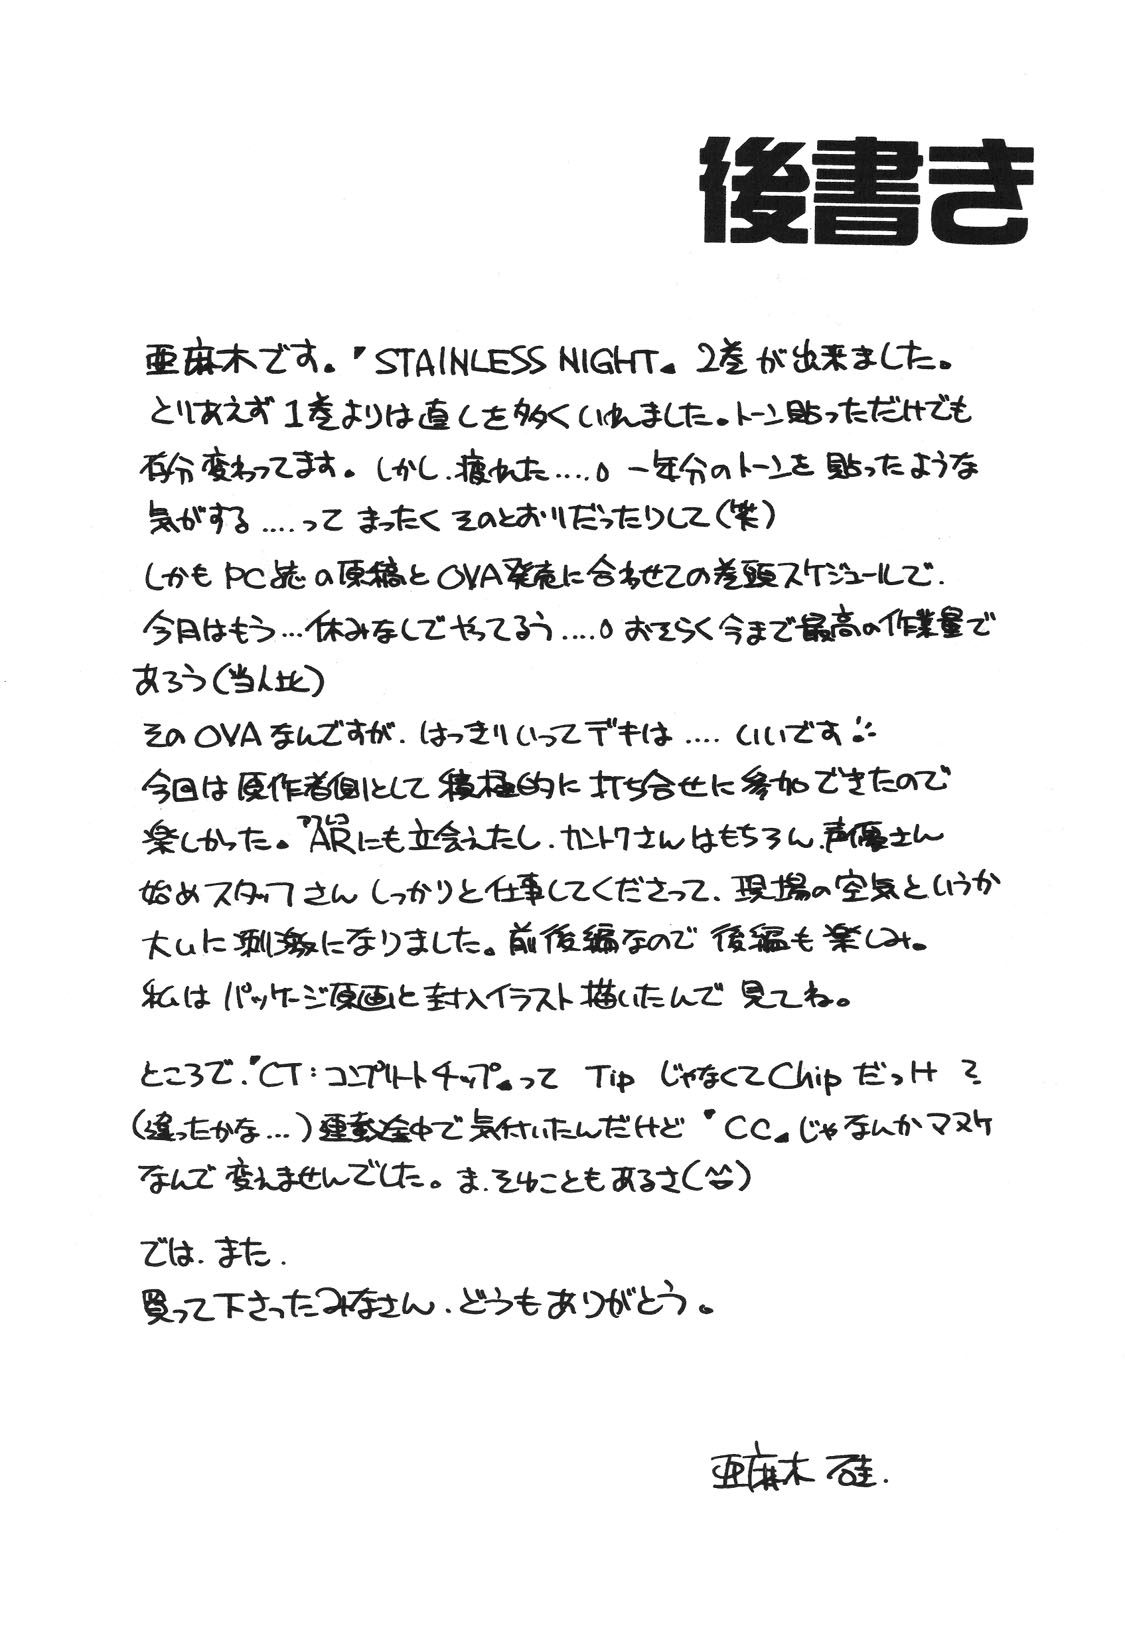 後書き
亜麻木です。『STAINLESS NIGHT』2巻が出来ました。
とりあえず1巻よりは直しを多くいれました。トーン貼っただけでも
存分変わってます。しかし、疲れた....。一年分のトーンを貼ったような
気がする....ってまったくそのとおりだったりして(笑)
しかもPC誌の原稿とOVA発売に合わせての巻頭スケジュールで、
今月はもう...休みなしでやってるぅ....。おそらく今まで最高の作業量で
あろう(当人比)
そのOVAなんですが、はっきりいってデキは....いいです
今回は原作者側として積極的に打ち合せに参加できたので
楽しかった。ARにも立会えたし、カントクさんはもちろん、声優さん
始めスタッフさんしっかりと仕事してくださって、現場の空気というか
大いに刺激になりました。前後編なので後編も楽しみ。
私はパッケージ原画と封入イラスト描いたんで見てね。
ところで、『CT:コンプリートチップ』ってTipじゃなくてChipだっけ?
(違ったかな...)連載途中で気付いたんだけど『CC』じゃなんかマヌケ
なんで変えませんでした。ま、そゆこともあるさ(^^)
では、また、
買って下さったみなさん、どうもありがとう。
亜麻木 硅.